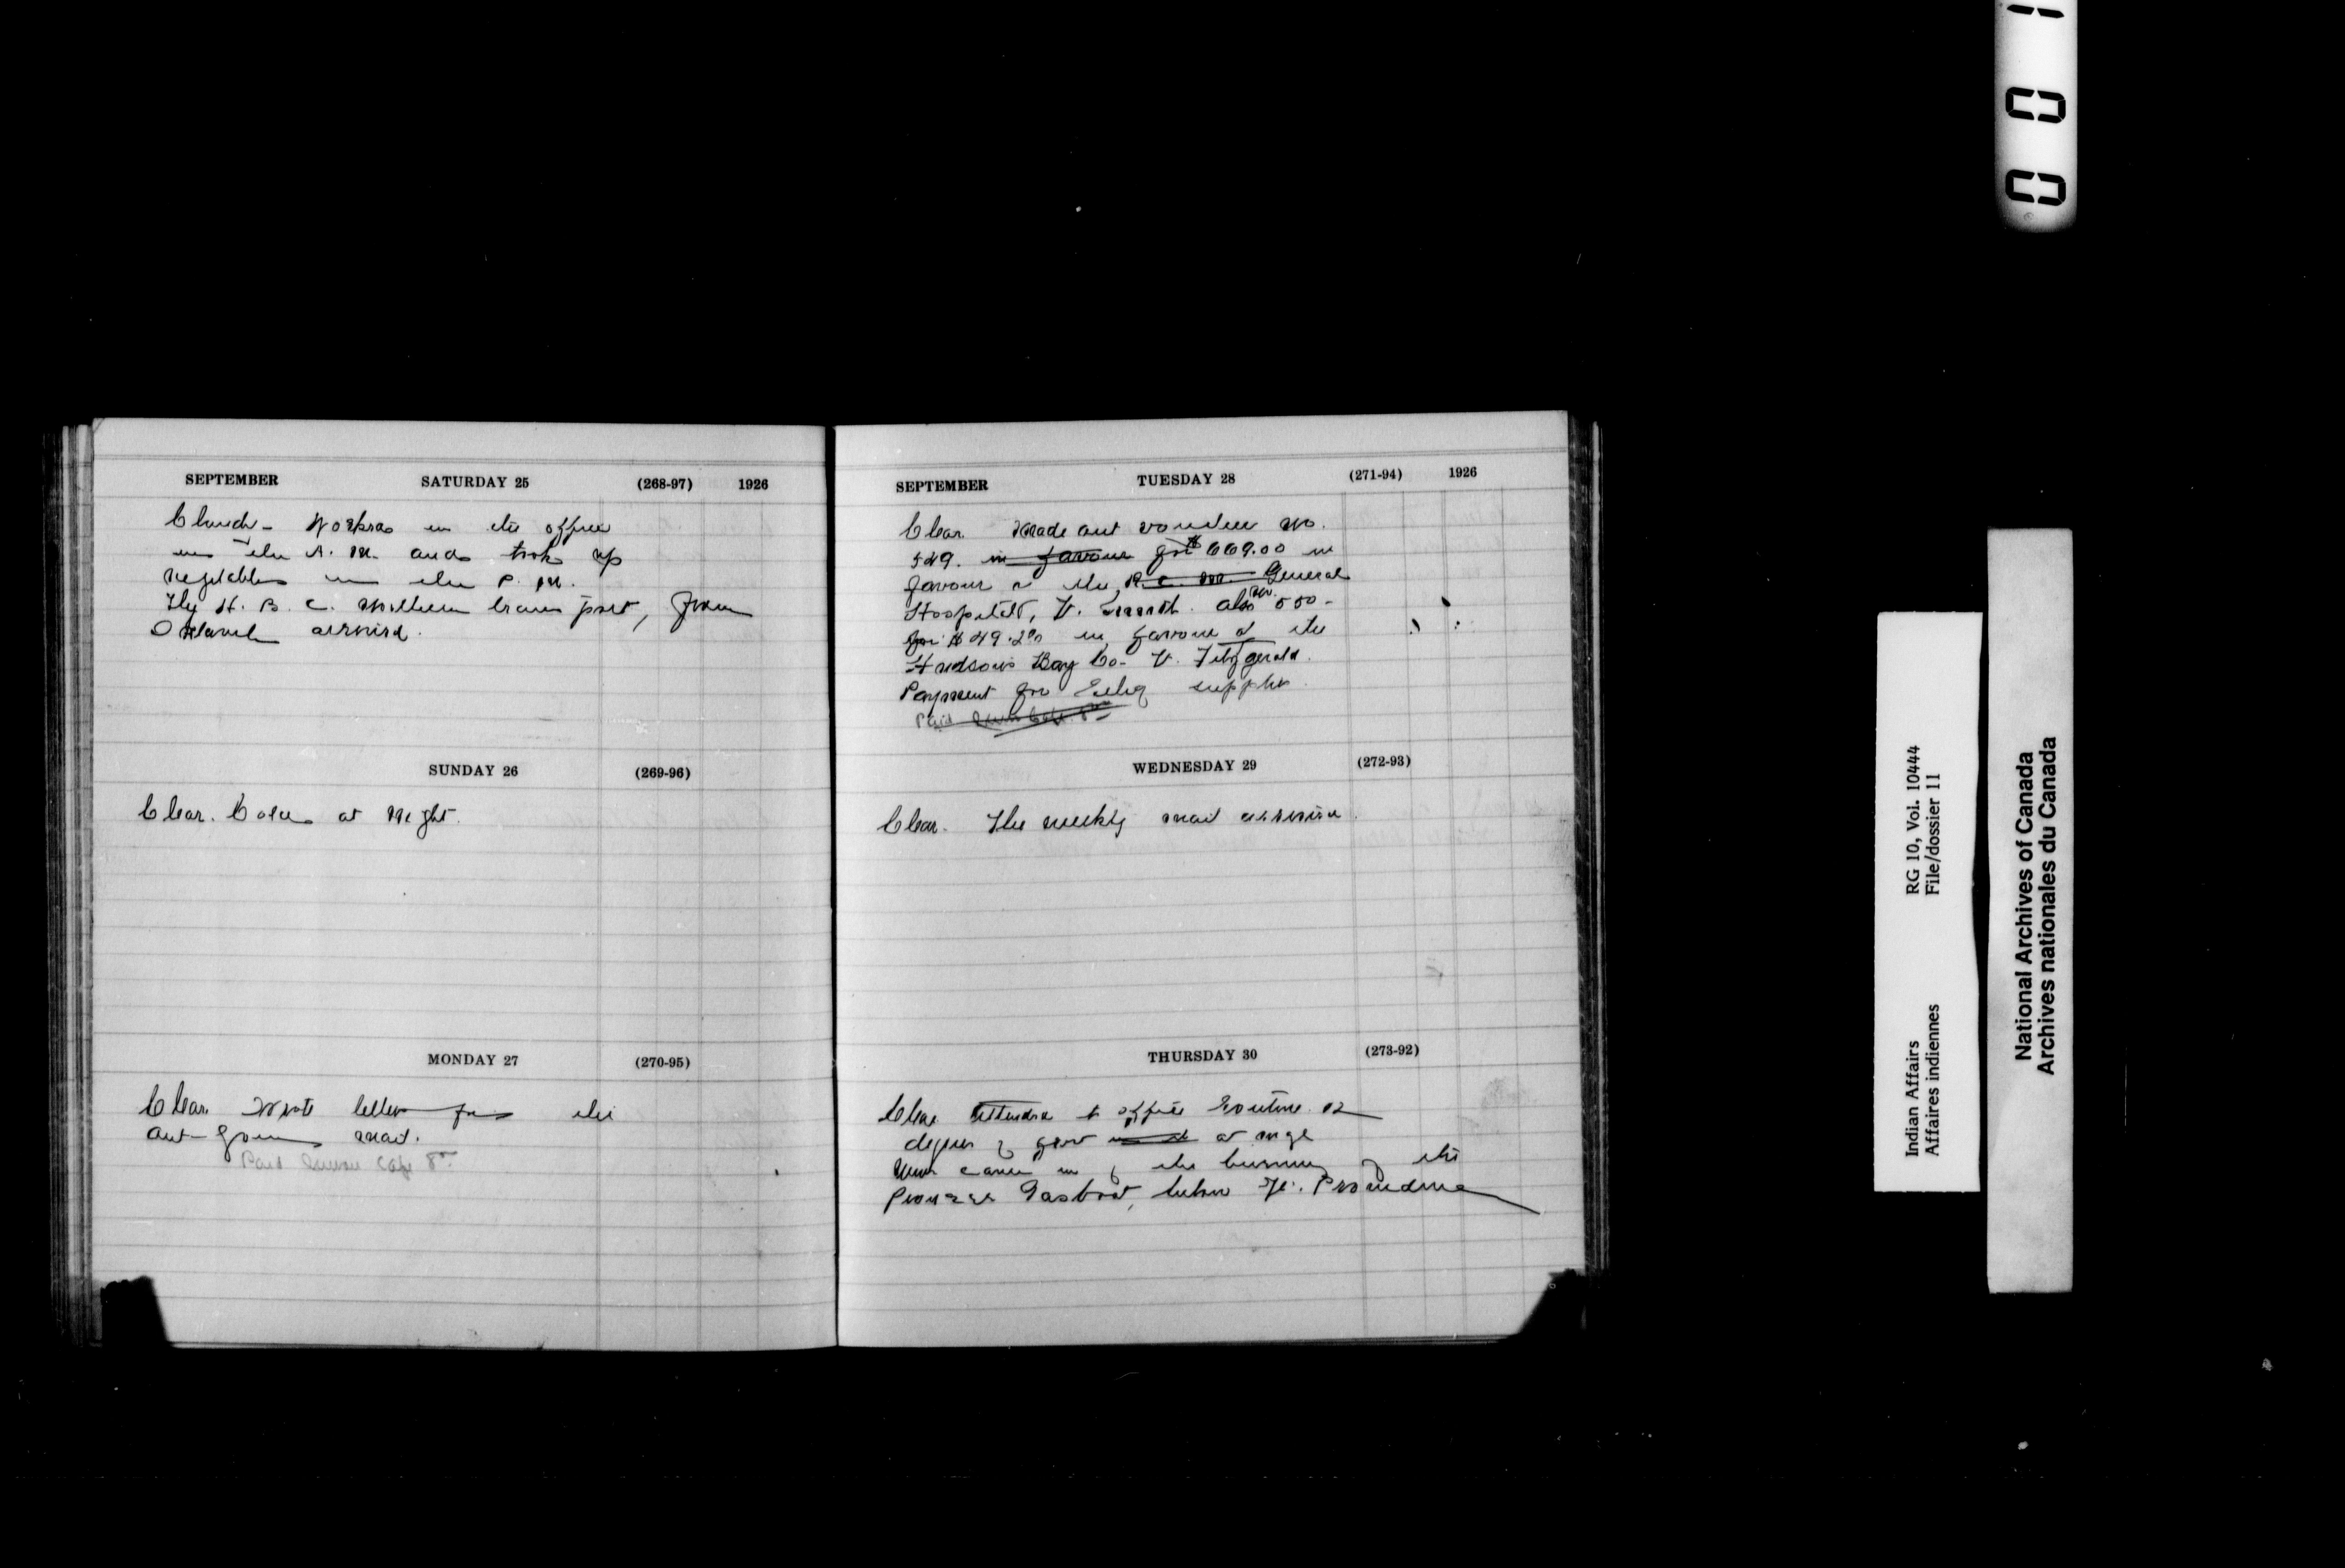 SEPTEMBER SATURDAY 25 (268-97) 1926
Cloudy - Worked in the office
in the A. M. and took up
vegetables in the P. M.
The H. B. C. Northern transport, from
arrived.
SUNDAY 26 (269-96)
Clear. Cold at Night.
MONDAY 27 (270-95)
Clear. Wrote letters for the
out-going mail.
Paid Cafe 8
SEPTEMBER TUESDAY 28 (271-94) 1926
Clear. Made out voucher No.
549. in favour for $669.00 in
favour of the R. C. M. General
Hospital, Ft. Smith. also No. 550-
for $49.20 in favour of the
Hudson's Bay Co. Ft. Fitzgerald.
Payment for supplies.
Paid 8
WEDNESDAY 29 (272-93)
Clear. The weekly mail arrived.
THURSDAY 30 (273-92)
Clear. Attended to office Routine. 12
degrees of frost at night
News came in of the burning of the
Pioneer Gasboat, below Ft. Providence
0 0 1
Indian Affairs RG 10, Vol. 10444
Affaires indiennes File/dossier 11
National Archives of Canada
Archives nationales du Canada